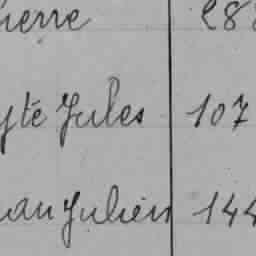 ierre 288
yte Jules 107
an Julien 144